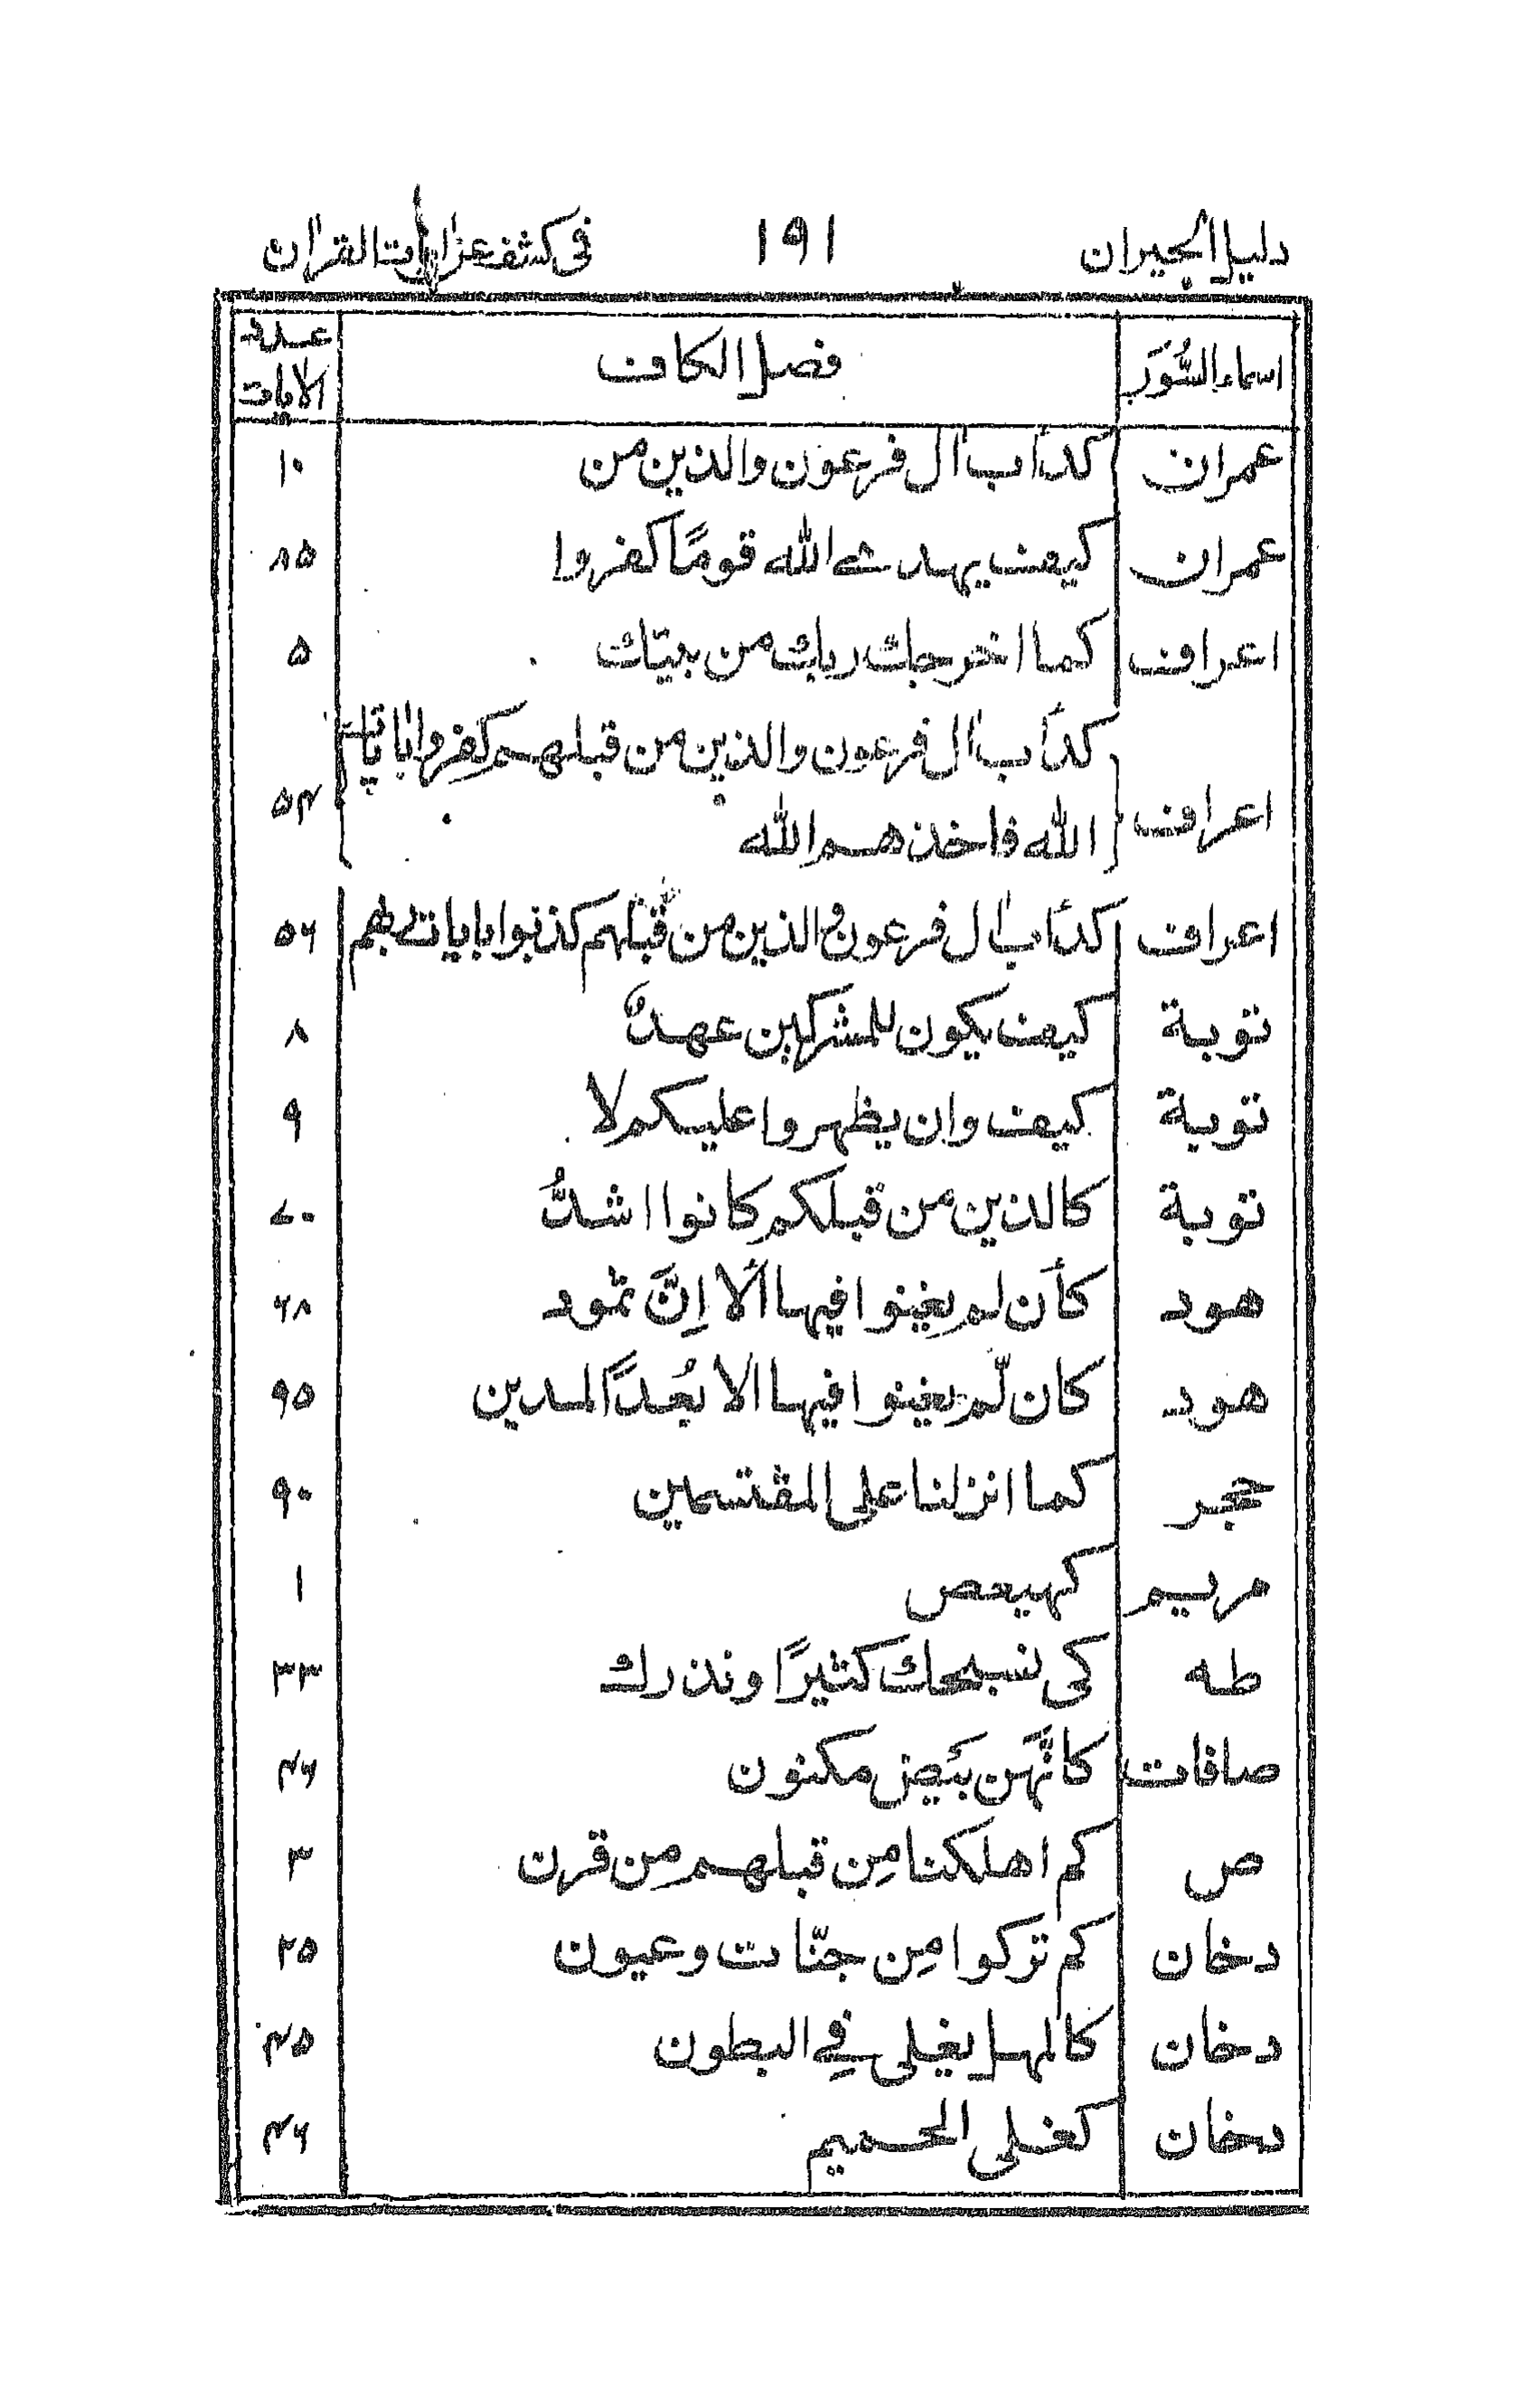 دليل الحيران ١٩١ في كشف عن ايات القران
اسماء السُّوَر فصل الكاف عدد الآيات
عمران كدأب اٰل فرعون والذين من ١٠
عمران كيف يهدى الله قومًا كفروا ٨٥
اعراف كما اخرجك ربك من بيتك ٥
كدأب اٰل فرعون والذين من قبلهم كفروا باٰيات
اعراف الله فاخذهم الله ٥٣
اعراف كدأب اٰل فرعون والذين من قبلهم كذبوا باٰيات ربهم ٥٦
توبة كيف يكون للمشركين عهدٌ ٨
توبة كيف وان يظهروا عليكم لا ٩
توبة كالذين من قبلكم كانوا اشدَّ ٧٠
هود كأن لم يغنوا فيها ألا اِنَّ ثمود ٦٨
هود كان لّم يغنوا فيها الا بُعدًا لمدين ٩٥
حجر كما انزلنا على المقتسمين ٩٠
مريم كهيعص ١
طه كى نسبحك كثيرًا ونذكرك ٣٣
صافات كانَّهن بَيض مكنون ٤٦
ص كم اهلكنا مِن قبلهم من قرن ٣
دخان كم تركوا مِن جنّات وعيون ٢٥
دخان كالمهل يغلى فِي البطون ٤٥
دخان كغلى الحميم ٤٦